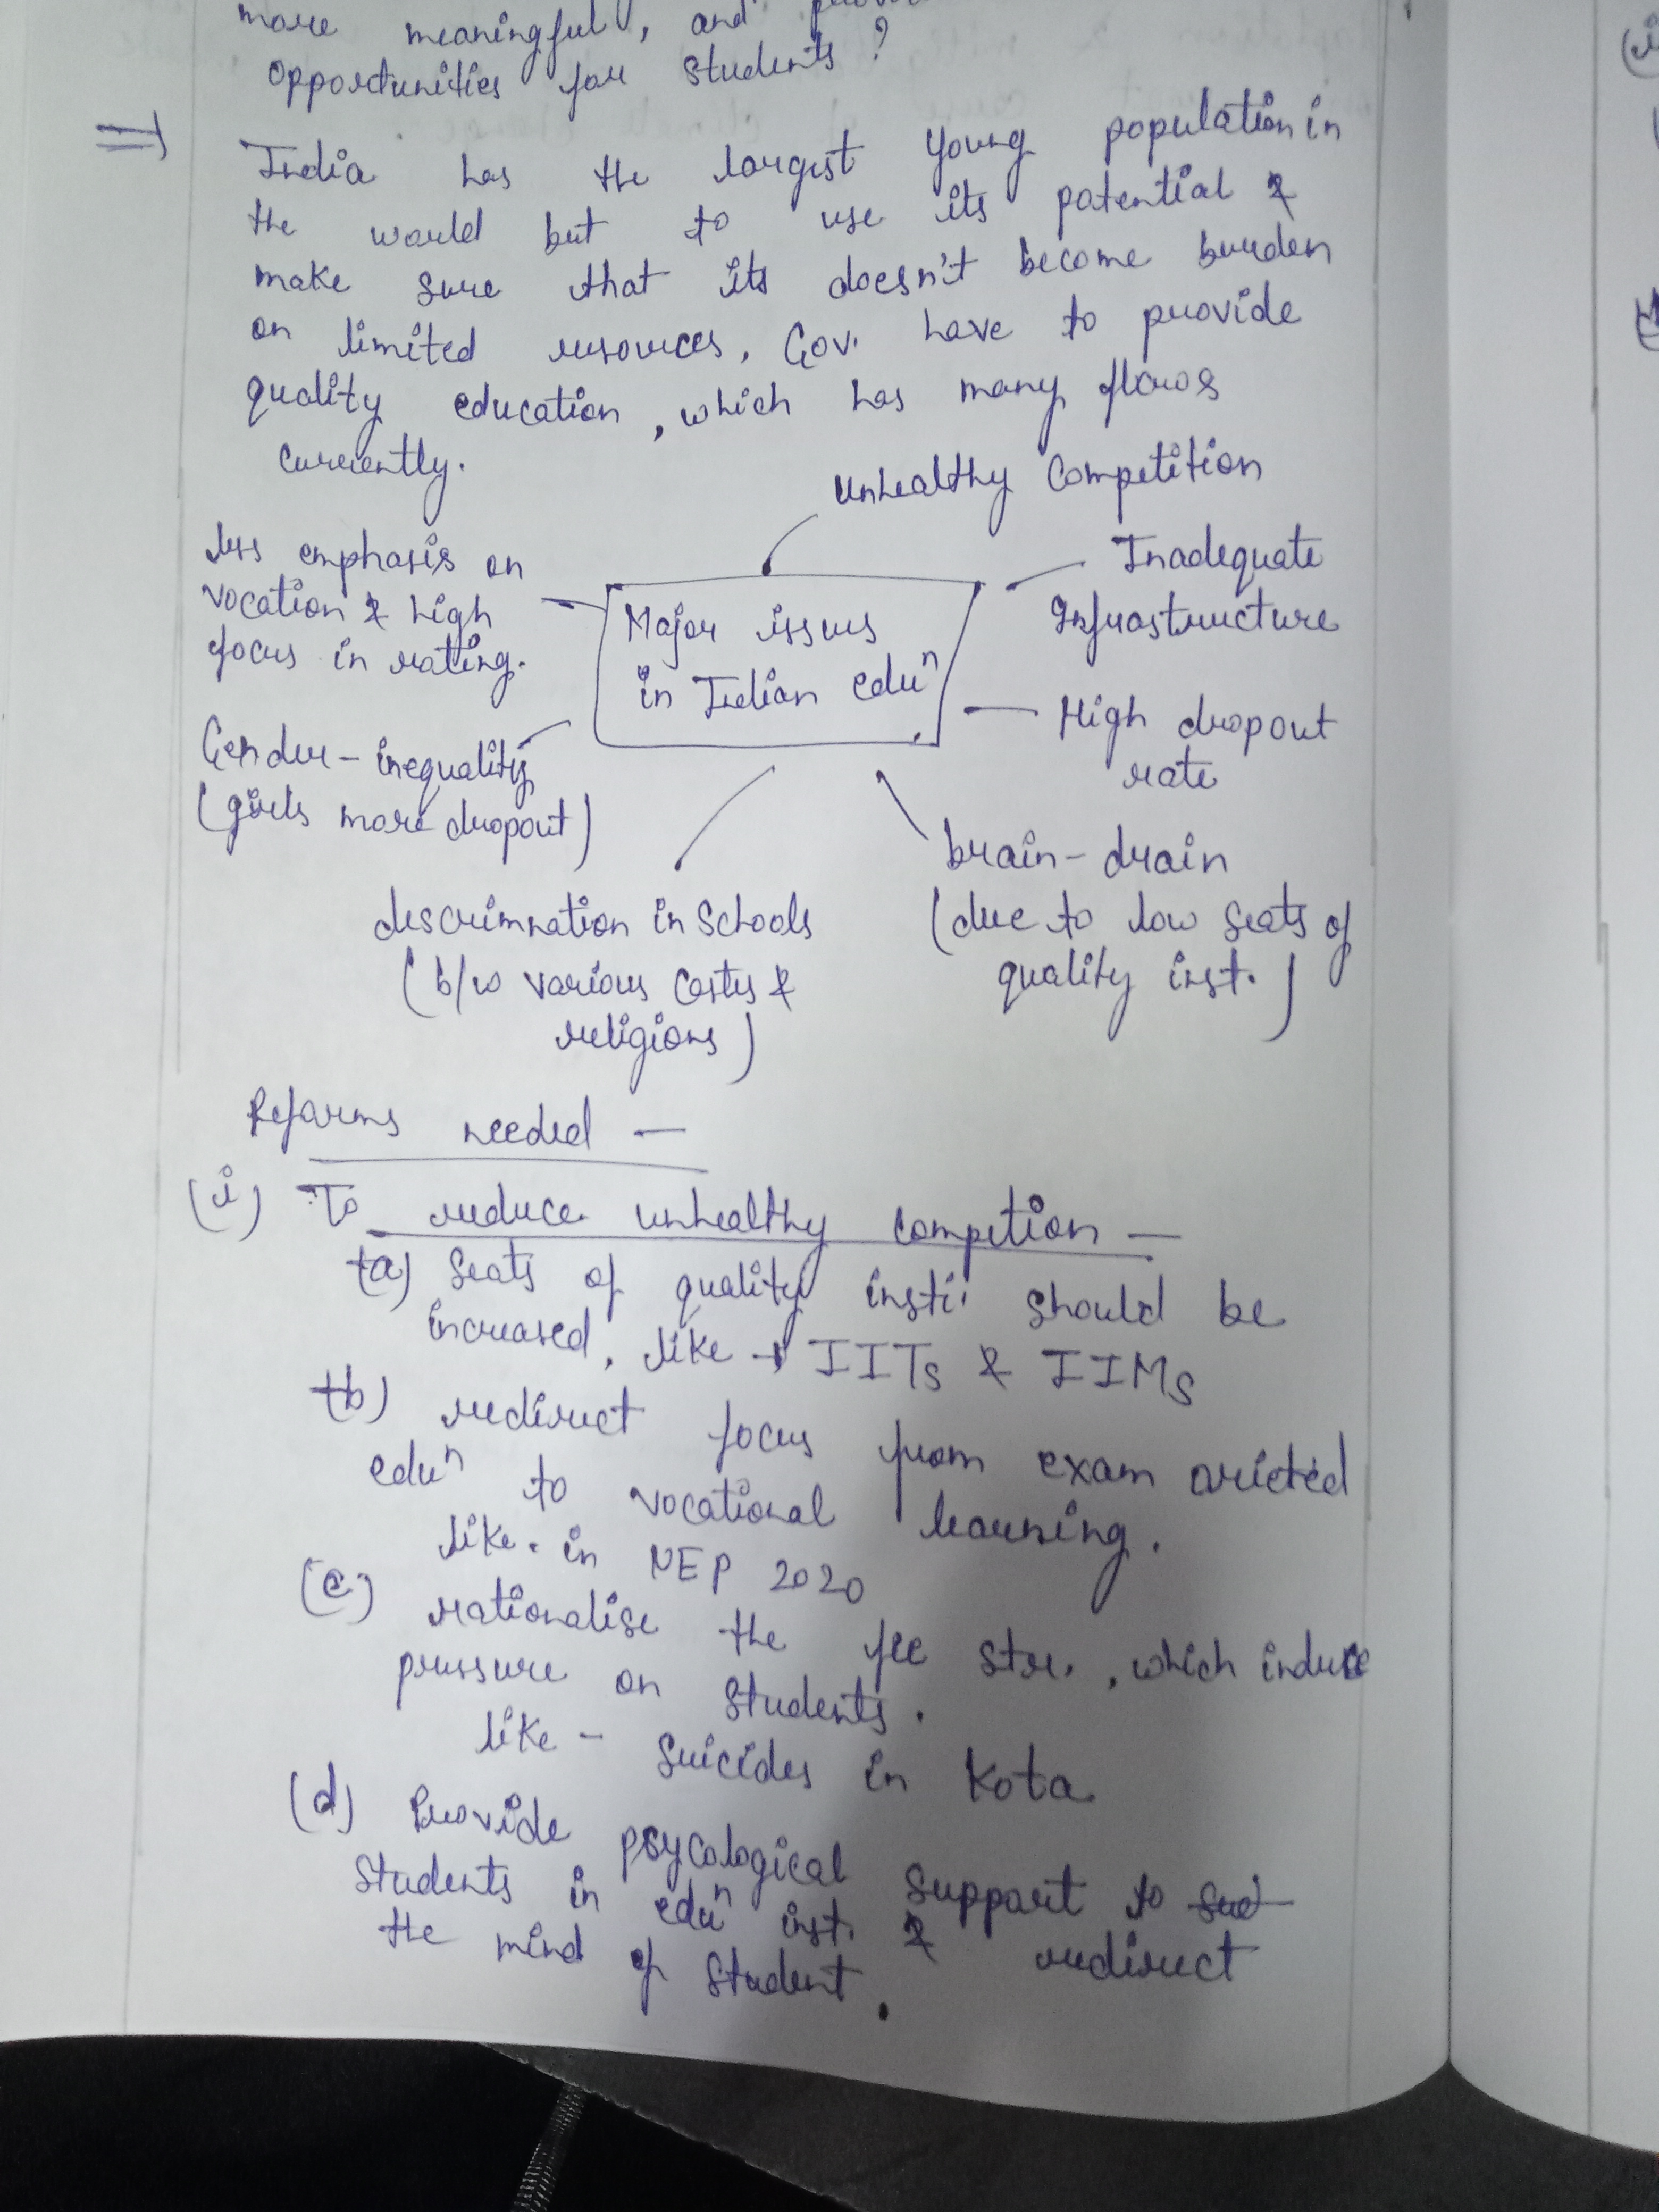 more meaningful, and
opportunities for students?
India has the largest young population in
the world but to use its potential &
make sure that its doesn't become burden
on limited resources, Gov. have to provide
quality education, which has many flaws
currently.
unhealthy Competition
less emphasis on
vocation & high
focus in rating.
Inadequate
Infrastructure
Major issues
in Indian eduⁿ
High dropout
rate
Gender-inequality
(girls more dropout)
brain-drain
(due to low seats of
quality inst.)
descrimnation in Schools
(b/w various castes &
religions)
Reforms needed —
(i) To reduce unhealthy compition —
(a) Seats of quality insti. should be
increased, like → IITs & IIMs
(b) redirect focus from exam oricted
eduⁿ to vocational learning.
like. in NEP 2020
(c) rationalise the fee str., which induce
pressure on students.
like - Suicides in Kota
(d) Provide psycological support to
students in eduⁿ inst. & redirect
the mind of student.